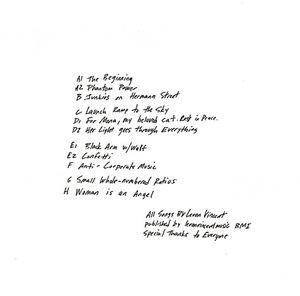 A1 The Beginning
A2 Phantom Power
B Junkies on Hermann Street
C Launch Ramp to the Sky
D1 For Mona, my beloved Cat. Rest in Peace.
D2 Her Light goes Through Everything
E1 Black Arm w/Wolf
E2 Confetti
F Anti-Corporate Music
G Small Whole-numbered Ratios
H Woman is an Angel
All Songs By Levon Vincent
published by levonvincentmusic BMI
Special Thanks to Everyone